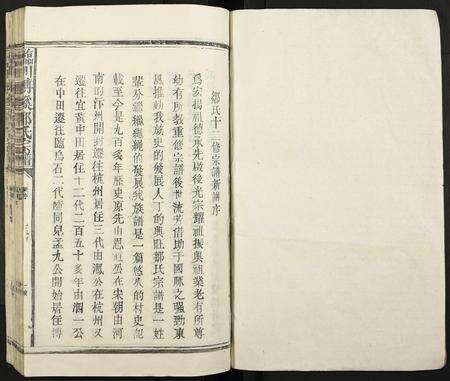 鄒氏十二修宗譜新譜序
爲宏揚祖德承先啟後光宗耀祖振興祖業老有所尊
幼有所教重修宗譜後世流芳借助于國脈之强勁東
風推動我族史的發展人丁的興旺鄒氏宗譜是一姓
輩分遷繼繩繩的發展我族譜是一篇悠久的村史記
載至今是九百多年歷史原先由恩 公在宋朝由河
南的汴州開封遷往杭州居住三代由 公在杭州又
遷往宜黃中田居住十二代二百五十多年由泗一公
在中田遷往臨 石二代 同兒孟九公開始居住